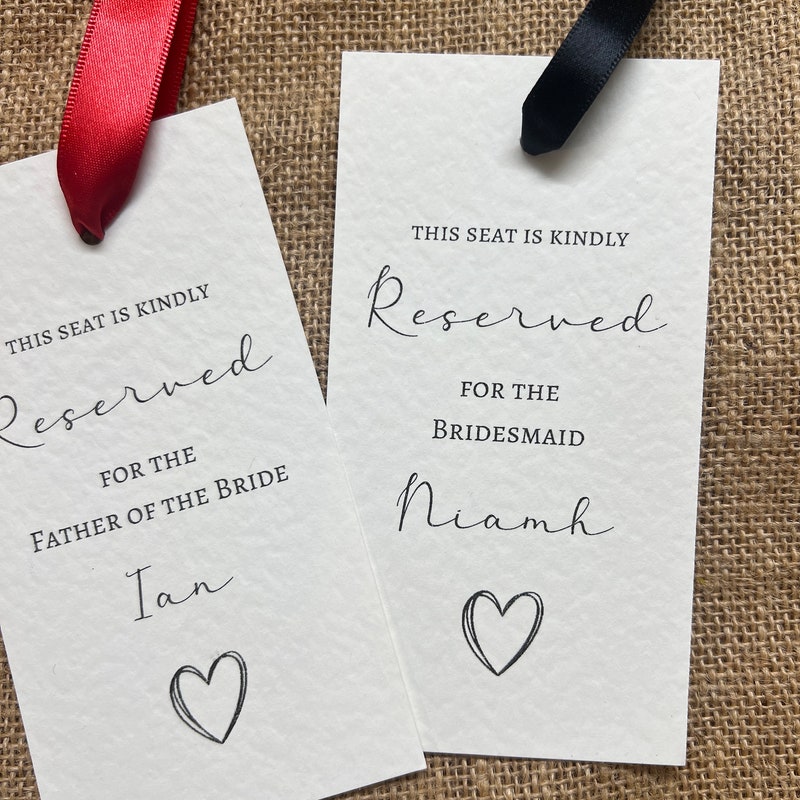 THIS SEAT IS KINDLY
Reserved
FOR THE
FATHER OF THE BRIDE
Ian
THIS SEAT IS KINDLY
Reserved
FOR THE
BRIDESMAID
Niamh